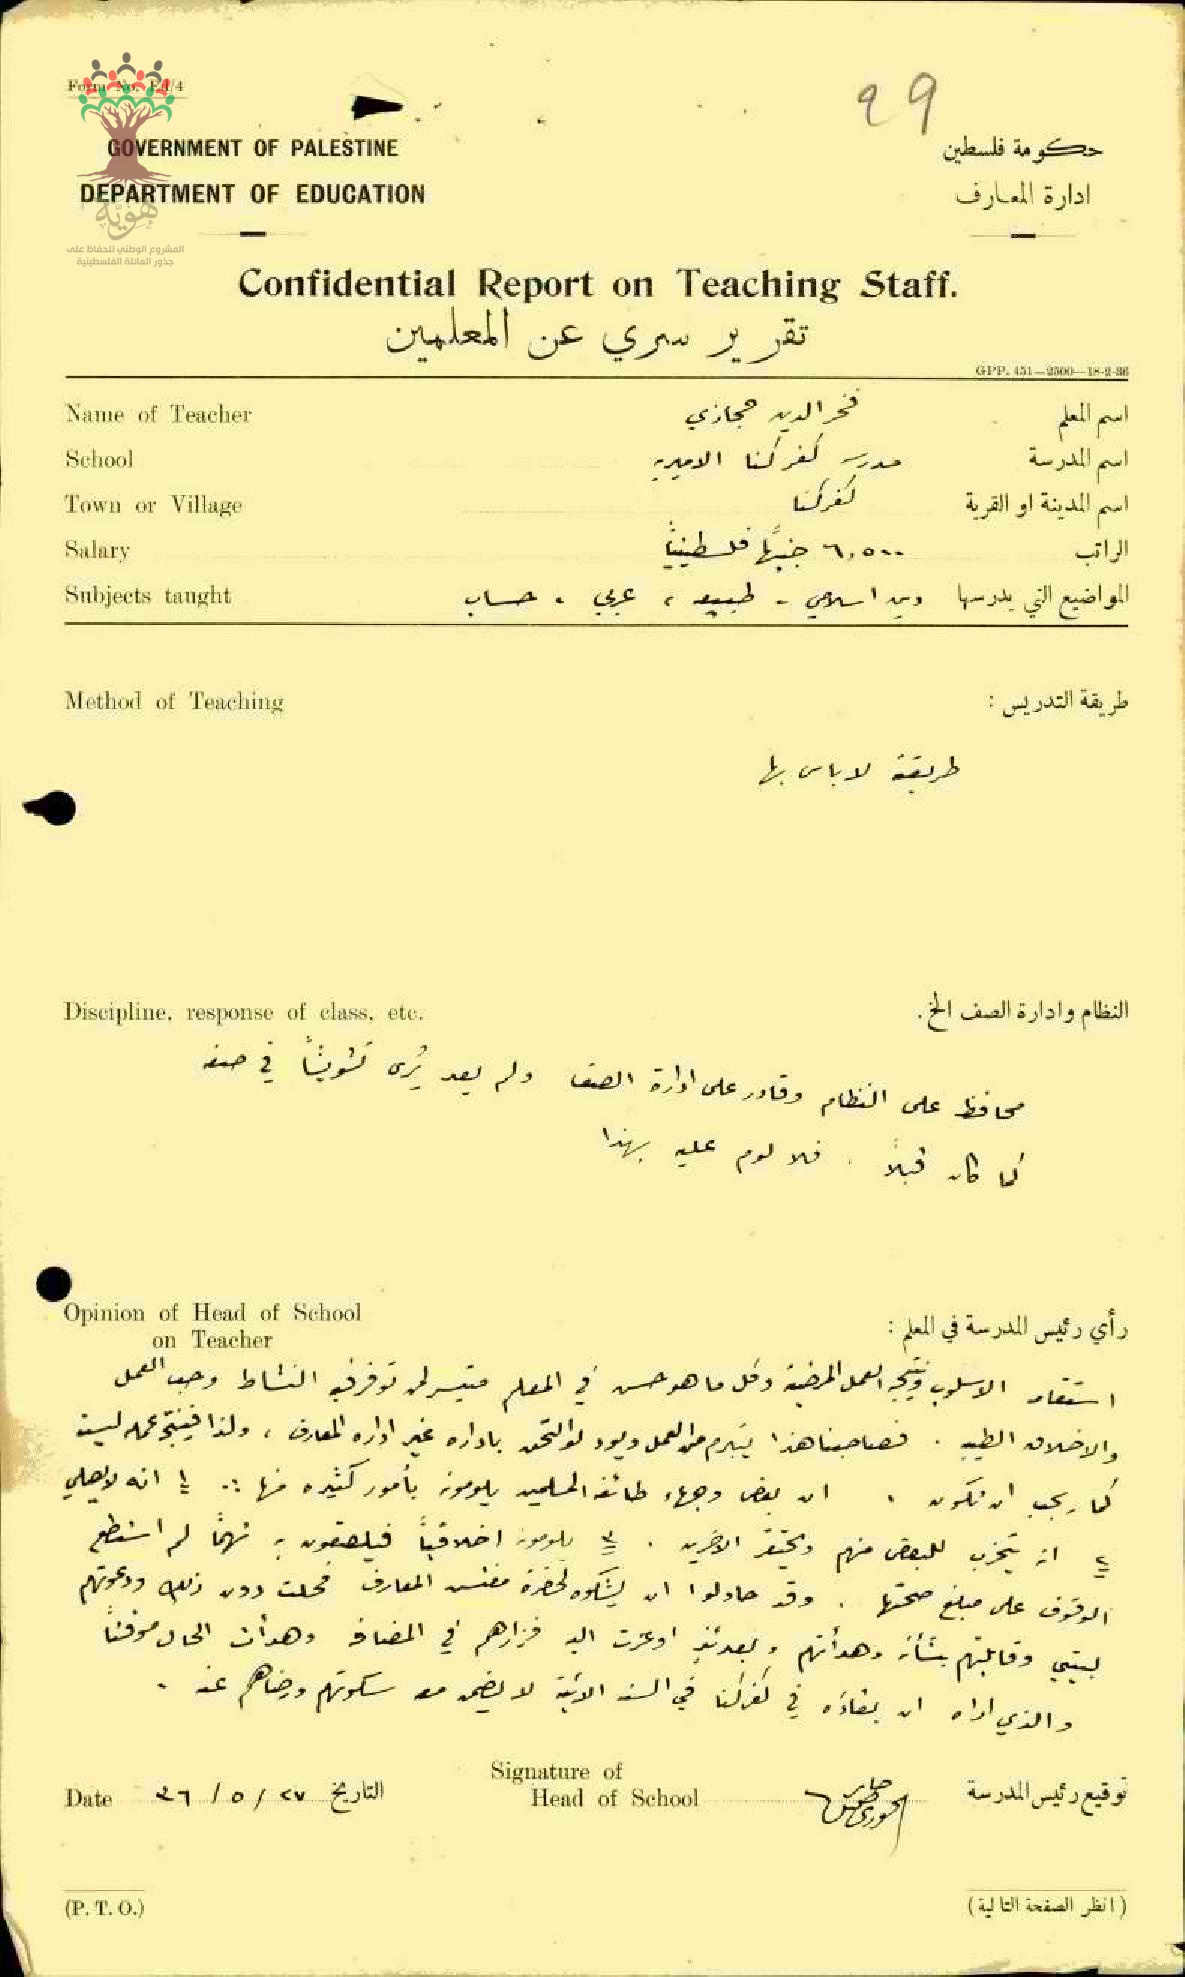 Form No. Ed/4
99
GOVERNMENT OF PALESTINE
حكومة فلسطين
DEPARTMENT OF EDUCATION
ادارة المعارف
هوية
المشروع الوطني للحفاظ على
جذور العائلة الفلسطينية
Confidential Report on Teaching Staff.
تقرير سري عن المعلمين
GPP. 451—2500—18-2-36
Name of Teacher فخر الدين حجازي اسم المعلم
School مدرسة كفركنا الاميرية اسم المدرسة
Town or Village كفركنا اسم المدينة او القرية
Salary ٦,٥٠٠ جنيهًا فلسطينيًا الراتب
Subjects taught المواضيع التي يدرسها دين اسلامي - طبيعه ، عربي ، حساب
Method of Teaching طريقة التدريس :
طريقة لا باس بها
Discipline, response of class, etc. النظام وادارة الصف الخ.
محافظ على النظام وقادر على ادارة الصف ولم يعد يُرى تشويشًا في صفه
كما كان قبلاً . فلا لوم عليه بهذا
Opinion of Head of School
on Teacher
رأي رئيس المدرسة في المعلم :
الاسلوب ونتيجة العمل المرضية وكل ما هو حسن في المعلم متيسر لمن توفر فيه النشاط وحب العمل
والاخلاق الطيبه . فصاحبنا هذا يتبرم من العمل ويود لو التحق باداره غير اداره المعارف ، ولذا فنتيجة عمله ليست
كما يجب ان تكون . ان بعض وجهاء طائفة المسلمين يلومونه بأمور كثيره منها :- ١ً انه لا يصلي
٢ انه يتحزب للبعض منهم ويحتقر الآخرين . ٣ يلومونه اخلاقياً فيلصقون به تهمًا لم استطع
الوقوف على مبلغ صحتها . وقد حاولوا ان يشكوه لحضرة مفتش المعارف فحلت دون ذلك ودعوتهم
لبيتي وقابلتهم بشأنه وهدأتهم وبعدئذٍ اوعزت اليه فزارهم في المضافه وهدأت الحال موقتاً
والذي اراه ان بقاءه في كفركنا في السنه الآتية لا يضمن معه سكوتهم ورضاهم عنه .
Signature of
Head of School توقيع رئيس المدرسة
Date ٢٧ / ٥ / ٣٦ التاريخ
(P. T. O.) (انظر الصفحة التالية)